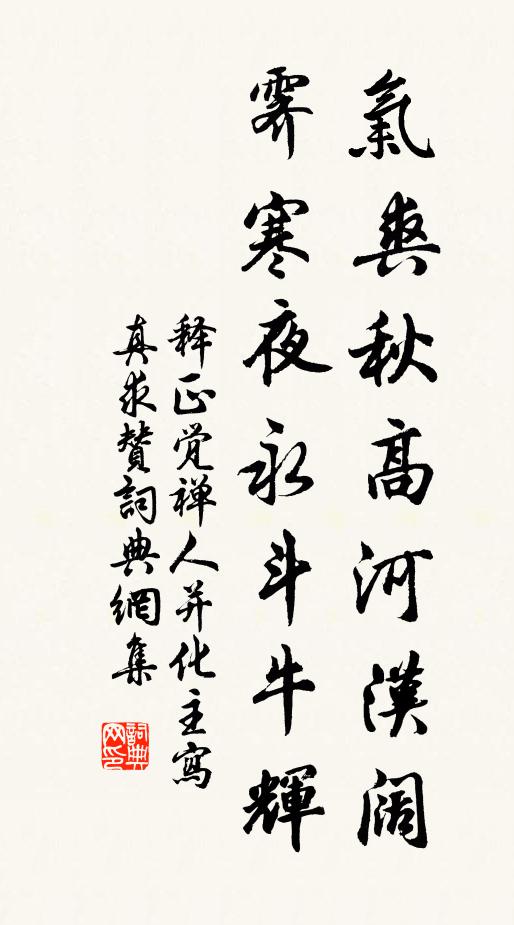 氣爽秋高河漢阔
霽寒夜永斗牛輝
释正覺禅人并化主寫
真求賛詞典網集
詞典网印